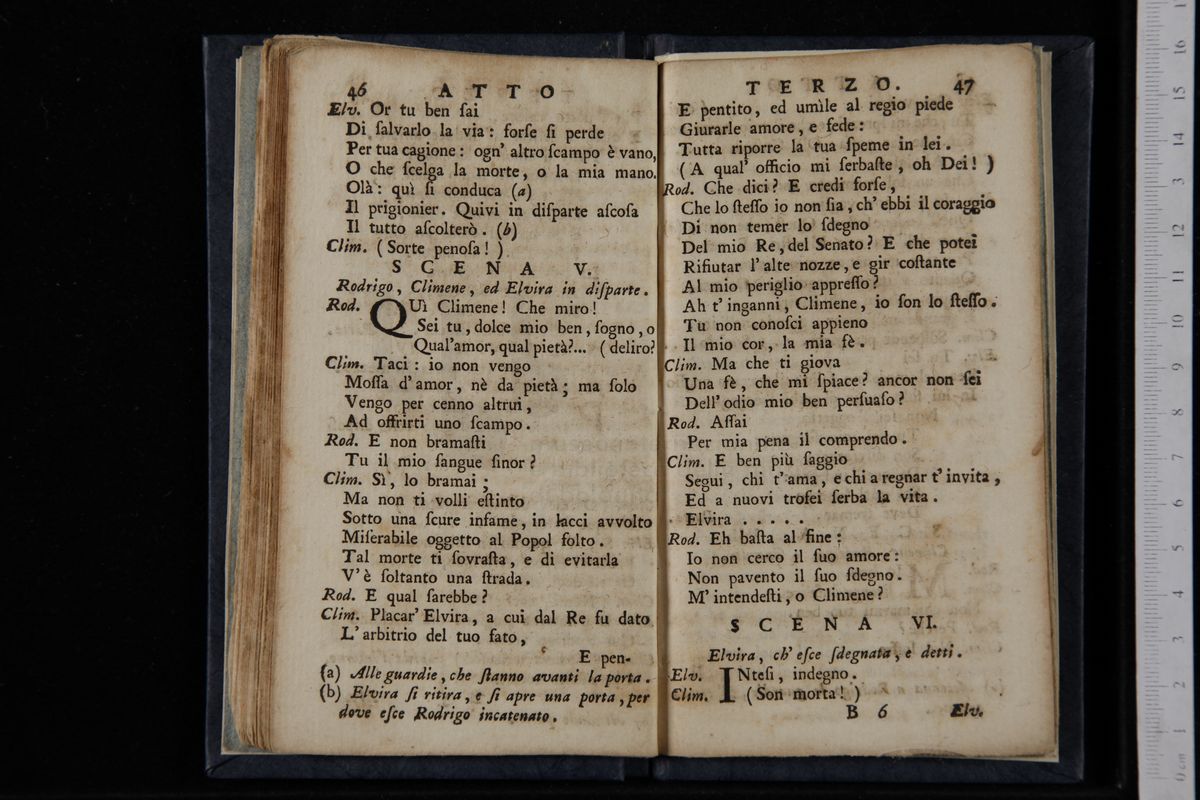 46 ATTO
Elv. Or tu ben ſai
Di ſalvarlo la via : forſe ſi perde
Per tua cagione : ogn' altro ſcampo è vano,
O che ſcelga la morte, o la mia mano.
Olà : quì ſi conduca (a)
Il prigionier. Quivi in diſparte aſcoſa
Il tutto aſcolterò. (b)
Clim. ( Sorte penoſa ! )
SCENA V.
Rodrigo, Climene, ed Elvira in diſparte.
Rod. QUì Climene ! Che miro !
Sei tu, dolce mio ben, ſogno, o
Qual'amor, qual pietà?... ( deliro?
Clim. Taci : io non vengo
Moſſa d'amor, nè da pietà ; ma ſolo
Vengo per cenno altrui,
Ad offrirti uno ſcampo.
Rod. E non bramaſti
Tu il mio ſangue ſinor ?
Clim. Sì, lo bramai ;
Ma non ti volli eſtinto
Sotto una ſcure infame, in lacci avvolto
Miſerabile oggetto al Popol folto.
Tal morte ti ſovraſta, e di evitarla
V'è ſoltanto una ſtrada.
Rod. E qual ſarebbe ?
Clim. Placar' Elvira, a cui dal Re fu dato
L'arbitrio del tuo fato,
E pen-
(a) Alle guardie, che ſtanno avanti la porta.
(b) Elvira ſi ritira, e ſi apre una porta, per
dove eſce Rodrigo incatenato.
TERZO. 47
E pentito, ed umìle al regio piede
Giurarle amore, e fede :
Tutta riporre la tua ſpeme in lei.
( A qual' officio mi ſerbaſte, oh Dei ! )
Rod. Che dici ? E credi forſe,
Che lo ſteſſo io non ſia, ch'ebbi il coraggio
Di non temer lo ſdegno
Del mio Re, del Senato ? E che potei
Rifiutar l'alte nozze, e gir coſtante
Al mio periglio appreſſo ?
Ah t'inganni, Climene, io ſon lo ſteſſo.
Tu non conoſci appieno
Il mio cor, la mia fè.
Clim. Ma che ti giova
Una fè, che mi ſpiace ? ancor non ſei
Dell'odio mio ben perſuaſo ?
Rod. Aſſai
Per mia pena il comprendo.
Clim. E ben più ſaggio
Segui, chi t'ama, e chi a regnar t'invita,
Ed a nuovi trofei ſerba la vita.
Elvira . . . . .
Rod. Eh baſta al fine :
Io non cerco il ſuo amore :
Non pavento il ſuo ſdegno.
M'intendeſti, o Climene ?
SCENA VI.
Elvira, ch'eſce ſdegnata, e detti.
Elv. INteſi, indegno.
Clim. ( Son morta ! )
B 6 Elv.
0 cm 1 2 3 4 5 6 7 8 9 10 11 12 13 14 15 16 17